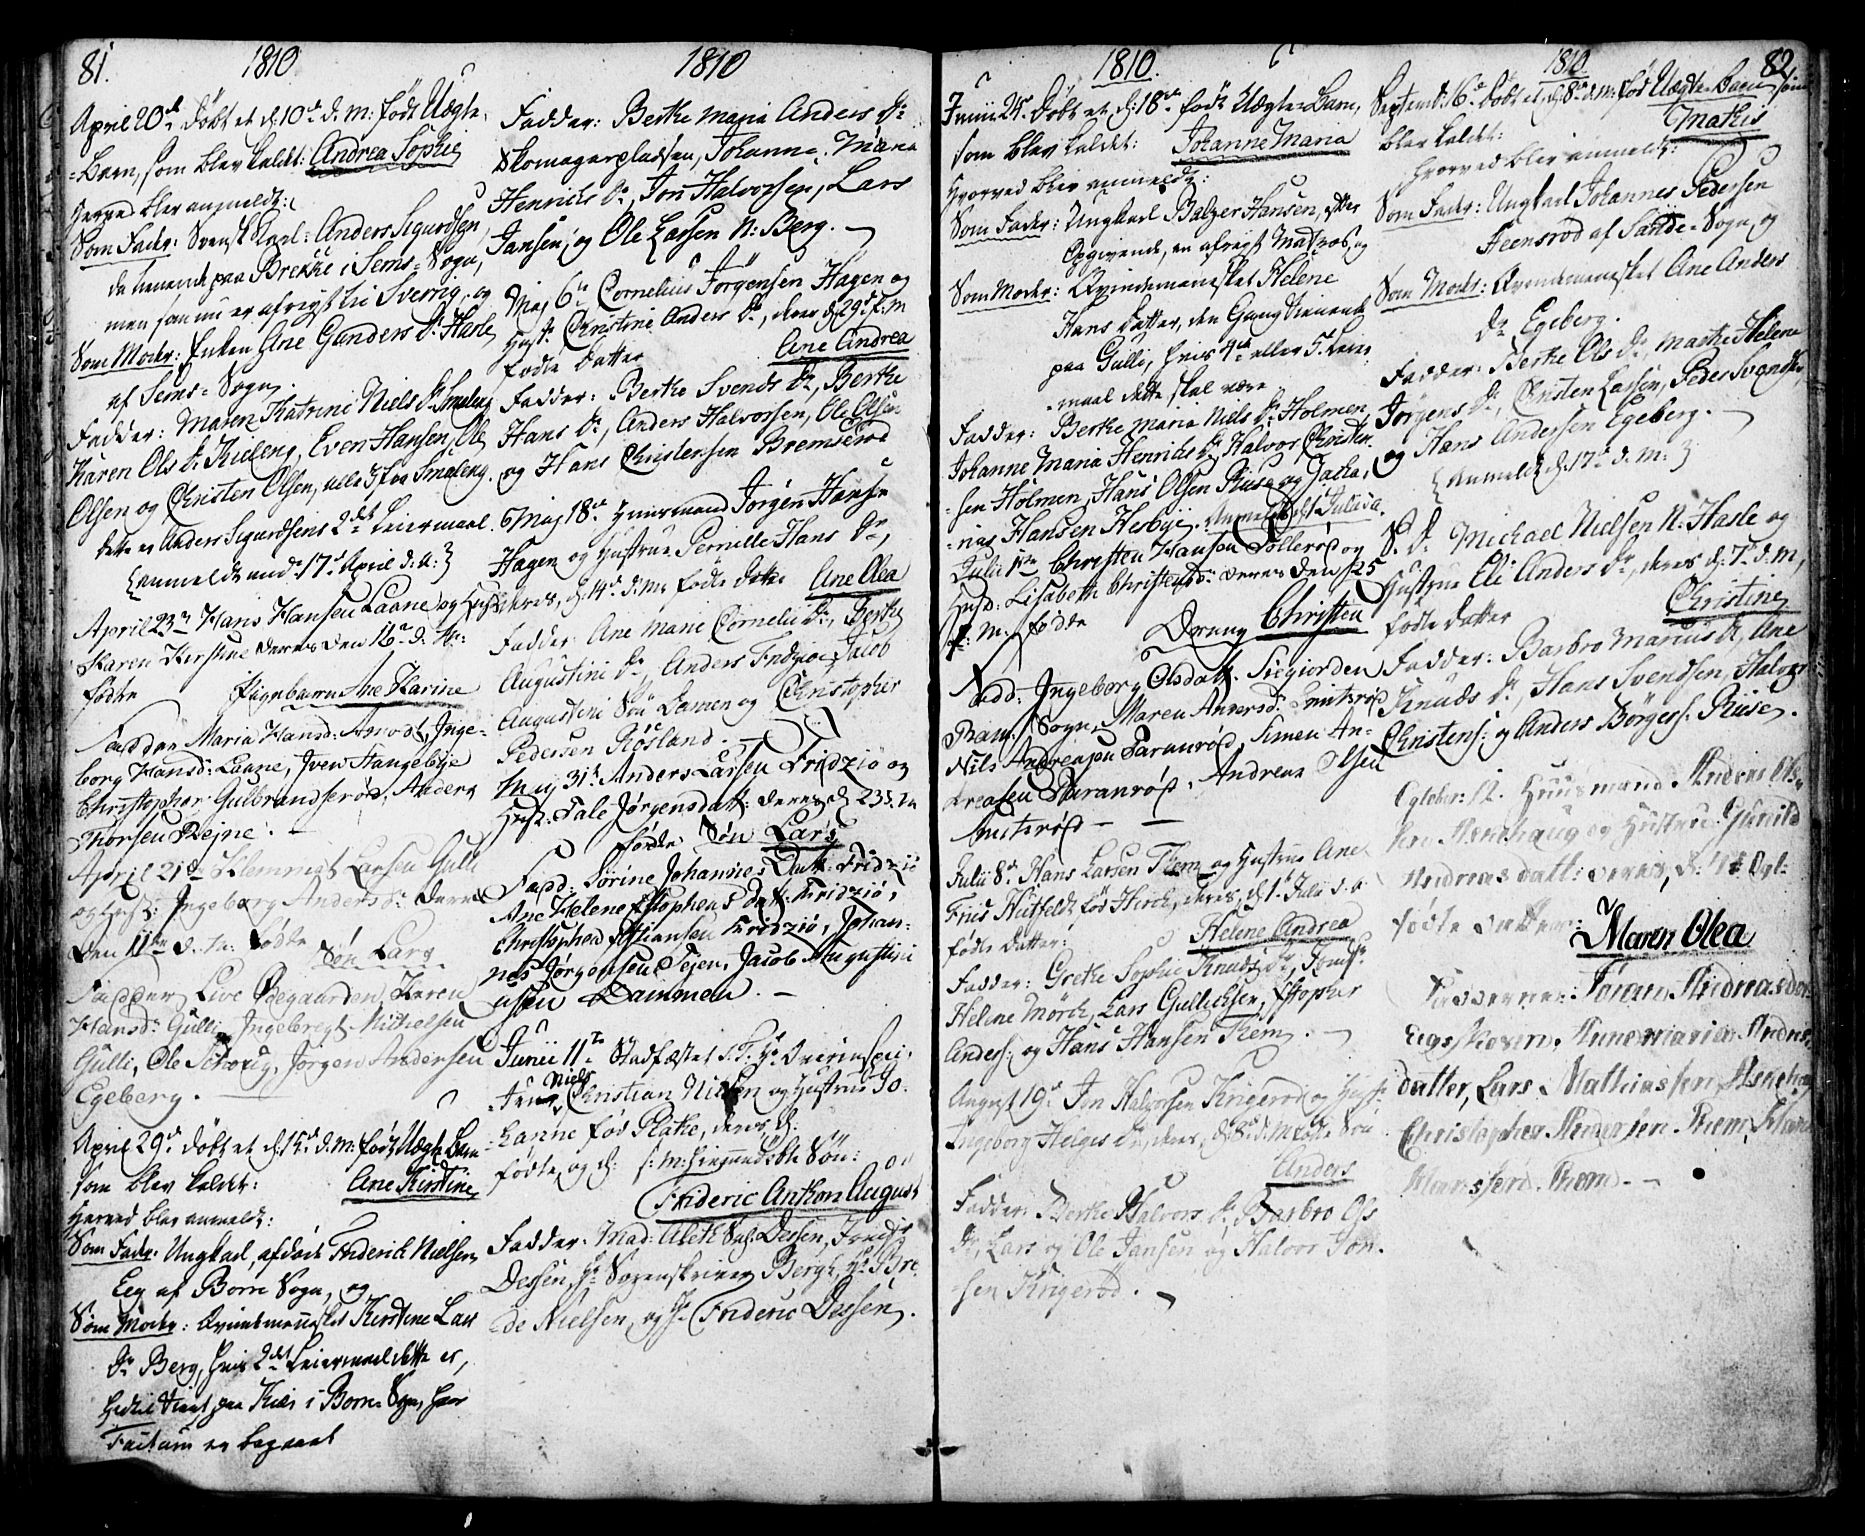 81.
1810
April 20de Døbt et d: 10de d. m: født Uægte-
-Barn, som blev kaldet: Andrea Sophie
Herved blev anmeldt:
Som Fader: Svensk Karl: Anders Sigurdsen,
da tienende paa Brekke i Sems-Sogn,
men som nu er afreyst til Sverrig, og
Som Moder: Enken Ane Gunders Dr Hasle
af Sems-Sogn.
Faddere: Maren Katrine Niels Dr Smaleng
Karen Ols Dr Kieleng, Even Hansen, Ole
Olsen og Christen Olsen, alle 3 fra Smaleng.
Dette er Anders Sigurdsens 2det Leiermaal.
(anmeldt und: 17de April d. A:)
April 23de Hans Hansen Laane og Hust:
Karen Kirstine deres den 16de d. M:
fødte Pigebarn Ane Karine
Faddere Maria Hansd: Amrot, Inge-
borg Hansd: Laane, Iver Haugebye
Christopher Gulbrandserød, Anders
Thorsen Rejne.
April 21de Klemmet Larsen Gulli
og Hust: Ingeborg Andersd: deres
den 11te d. M: fødte
Søn Lars
Faddere Live Oegaarden, Karen
Hansd: Gulli, Ingebregt Michelsen
Gulli, Ole Schovig, Jørgen Andersen
Egeberg.
April 29de døbt et d: 15de d. m: født Uægte Barn
som blev kaldet: Ane Kirstine
Herved blev anmeldt:
Som Fader: Ungkarl, afdøde Frideric Nielsen
Eeg af Borre Sogn, og
Som Moder: Qvindemennesket Kirstine Lars
Dr Berg, hvis 2det Leiermaal dette er,
paa i Borre Sogn, hvor
Factum er begaaet
1810
Fadder: Berthe Maria Anders Dr
Skomagerpladsen, Johanne Maria
Henrichs Dr, Jon Halvorsen, Lars
Jansen, og Ole Larsen N: Berg.
Maj 6te Cornelius Jørgensen Hagen og
Hust: Christine Anders Dr, deres d: 29de f. m
fødte Datter Ane Andrea
Fadder: Berthe Svends Dr, Berthe
Hans Dr, Anders Halvorsen, Ole Olsen
og Hans Christensen Bremserød
Maj 18de Huusmand Jørgen Hansen
Hagen og Hustrue Pernille Hans Dr,
deres, d: 4de d. m: fødte Datter Ane Olea
Fadder: Ane Marie Cornelii Dr, Berthe
Augustini Dr, Anders Jacob
Augustini Søn Damen og Christopher
Pedersen Røsland.
Maj 31te Anders Larsen Fridziø og
Hust: Tale Jørgensdatt: deres d: 23 d. m
fødte Søn Lars
Fadd: Sørine Johannes Datt: Fridziø
Ane Helene Xstophers Datt: Fridziø,
Christopher Xstiansen Fridziø, Johan-
nes Jørgensen Tejen, Jacob Augustini
usen Dammen.
Junii 11te Stadfæstet S. T. Hr
Niels Christian Nielsen og Hustrue Jo-
hanne fød Plathe, deres d:
fødte, og d: f: m: hiemmedøbte Søn:
Frideric Anthon August
Fadder: Mad: Aleth Sal: Dessen, Jomfr
Dessen, Hr Sorenskriver Bergh, Hr Bre-
de Nielsen, og Hr Frideric Dessen.
1810.
Junii 24de Døbt et d: 18de født Uægte-Barn,
som blev kaldet: Johanne Maria
Hvorved blev anmeldt:
Som Fader: Ungkarl Balzer Hansen, efter
Opgivende, en afreyst Matros, og
Som Moder: Qvindemennesket Helene
Hans Datter, den Gang tienende
paa Gulli, hvis 4de eller 5te Leier-
-maal dette skal være
Fadder: Berthe Maria Niels Dr Holmen,
Johanne Maria Henrichs Dr, Halvor Christen-
sen Holmen, Hans Olsen Ruse og Zacha-
-rias Hansen Hesbye. Anmeldt d: 1 Julii d. a.
Julii 1te Christen Hansen Sollerød og
Husd: Lisabeth Christensd: deres den 25
f: M. fødte
Dreng Christen
Fadd: Ingeborg Olsdatt. Siegiorden
Ram: Sogn, Maren Andersd: Smitsrød
Nils Andreasen Taranrød, Simen An-
dreasen Taranrød, Andreas Olsen
Smitsrød
Julii 8de Hans Larsen Them og Hustrue Ane
Fris Hütfeldt fød Hirch, deres, d: 1te Julii d. a
fødte Datter: Helene Andrea
Fadder: Grethe Sophie Knuds Dr, Jomfr:
Helene Mørch, Lars Gullichsen, Xstopher
Anders: og Hans Hansen Them.
August 19de Jon Halvorsen Krigerød og Hust:
Ingeborg Helges Dr, deres, d: 8de d. M fødte Søn
Anders
Fadder: Berthe Halvors Dr, Barbro Ols
Dr, Lars og Ole Jansen, og Halvor Jon-
sen Krigerød.
1810
82.
Septemb: 16de Døbt et, d: 8de d. m: fød Uægte-Barn som
blev kaldet: Mathis
Hvorved blev anmeldt:
Som Fader: Ungkarl Johannes Pedersen
Steensrød af Sande-Sogn, og
Som Moder: Qvindemennesket Ane Anders
Dr Egeberg.
Fadder: Berthe Ols Dr, Marthe Helene
Jørgens Dr, Christen Larsen, Peder
og Hans Andersen Egeberg.
(Anmeldt d: 17de d. m:)
S. D. Michael Nielsen N: Hasle og
Hustrue Eli Anders Dr, deres d: 7de d. m,
fødte Datter Christine
Fadder: Barbro Marius Dr, Ane
Knuds Dr, Hans Svendsen, Halvor
Christens: og Anders Børgers: Ruse.
October: 12. Huusmand Anders
og Hustrue Gunild
Andreasdatt: deres, d: Oct:
fødte Datter:
Maren Olea
Fadderne: Andreasdat-
Eegs Anne Maria Anders-
datter, Lars Mathiassen
Christopher Andersen Them,
Them.